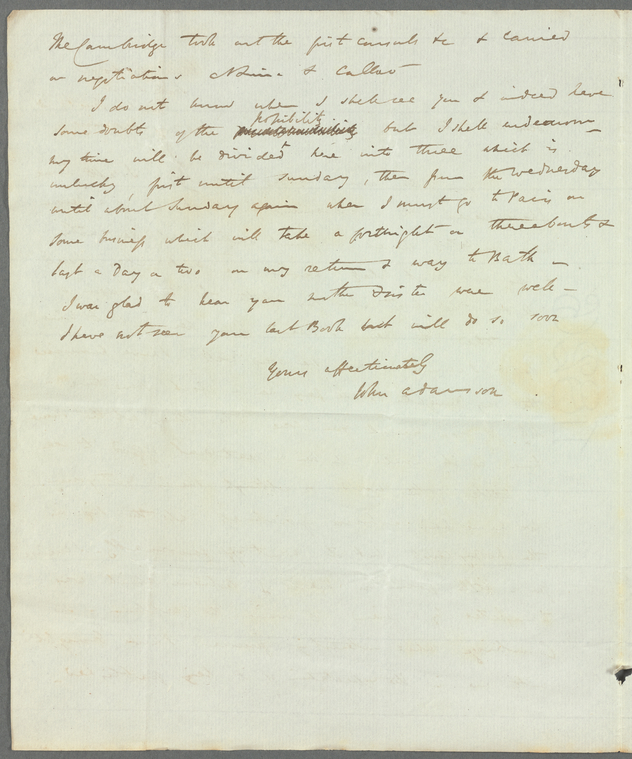 The Cambridge took out the first consuls &c & carried
on negotiations & Callao
I do not know when I shall see you & indeed have
possibility
some doubts of the but I shall endeavour
my time will be divided here into three which is
unlucky, first until Sunday, then from the Wednesday
until about Sunday again when I must go to Paris on
some business which will take a fortnight or thereabouts &
last a Day or two on my return & way to Bath —
I was glad to hear your mother & sister were well —
I have not seen your last Book but will do so soon
Yours affectionately
John Adamson